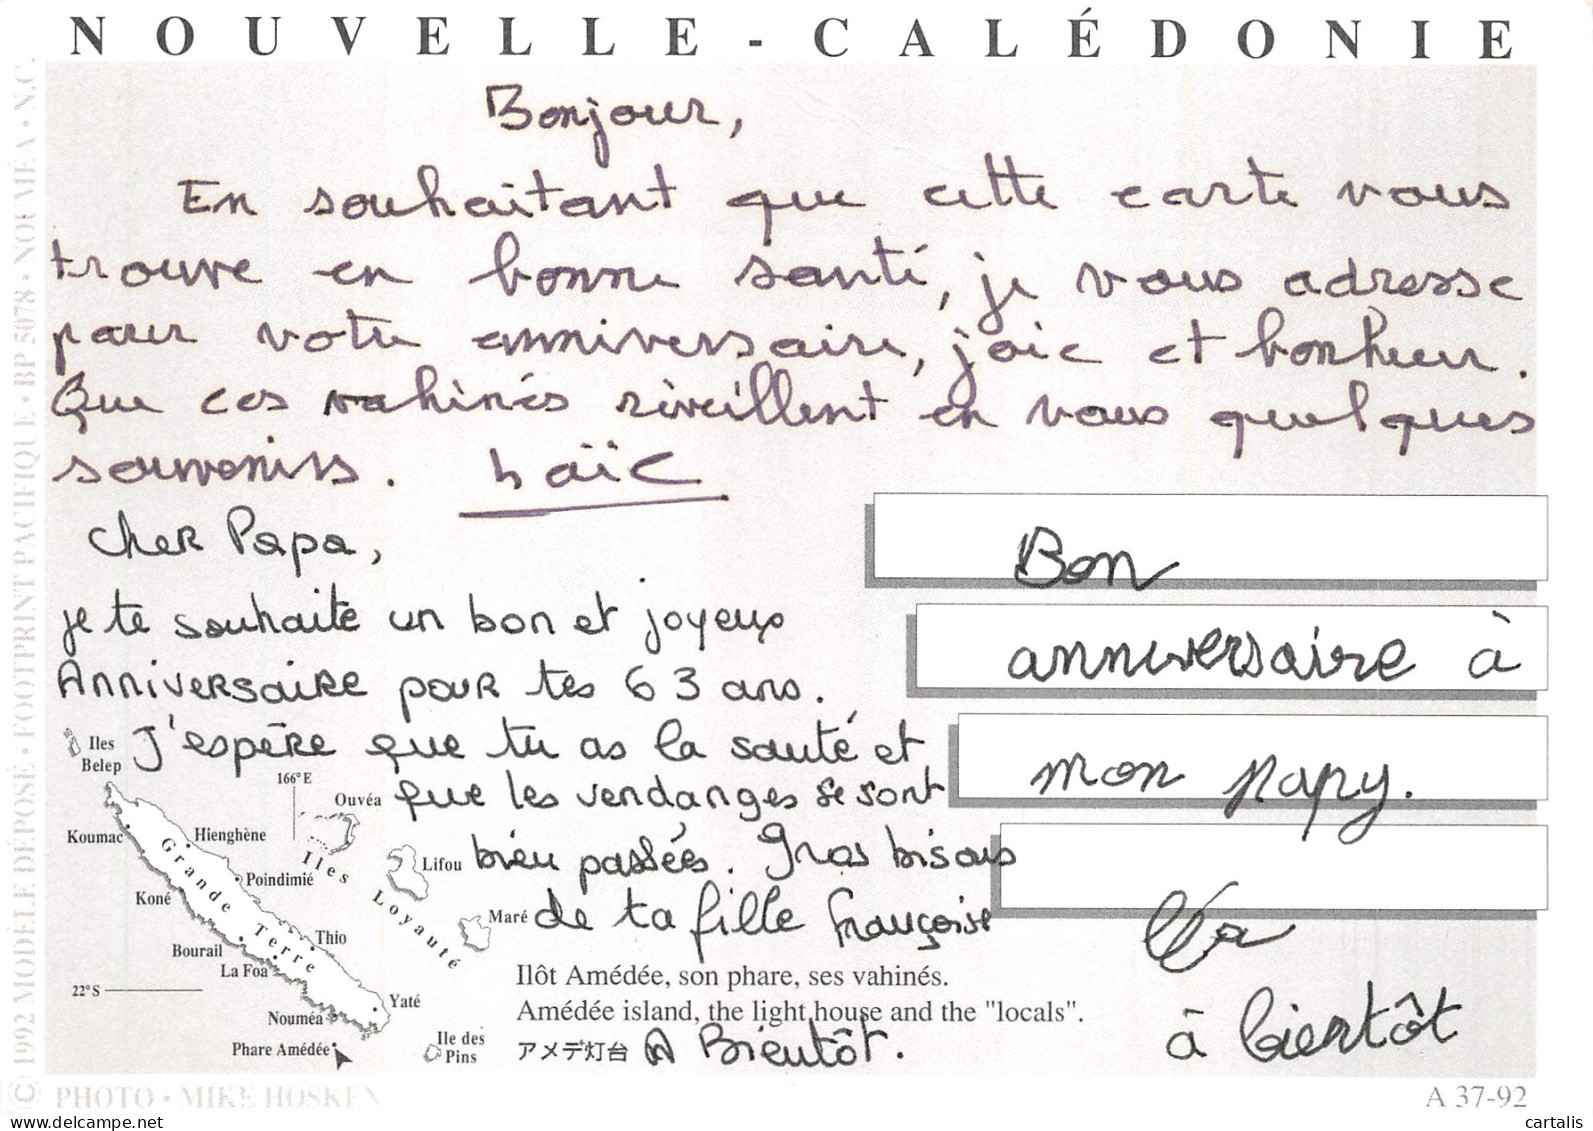 NOUVELLE-CALÉDONIE
Bonjour,
En souhaitant que cette carte vous
trouve en bonne santé, je vous adresse
pour votre anniversaire, joie et bonheur.
Que ces vahinés réveillent en vous quelques
souvenirs. Loïc
Cher Papa,
je te souhaite un bon et joyeux
Anniversaire pour tes 63 ans.
J'espère que tu as la santé et
que les vendanges se sont
bien passées. Gros bisous
de ta fille Françoise
A Bientôt.
Bon
anniversaire à
mon papy.
Léa
à bientôt
Iles
Belep
166° E
Ouvéa
Koumac
Hienghène
Iles
Loyauté
Lifou
Grande Terre
Poindimié
Koné
Maré
Thio
Bourail
La Foa
22° S
Yaté
Nouméa
Phare Amédée
Ile des
Pins
Ilôt Amédée, son phare, ses vahinés.
Amédée island, the light house and the "locals".
アメデ灯台
© 1992 MODÈLE DÉPOSÉ • FOOTPRINT PACIFIQUE • BP 5078 • NOUMÉA • N.C.
PHOTO • MIKE HOSKEN
A 37-92
delcampe.net
cartalis